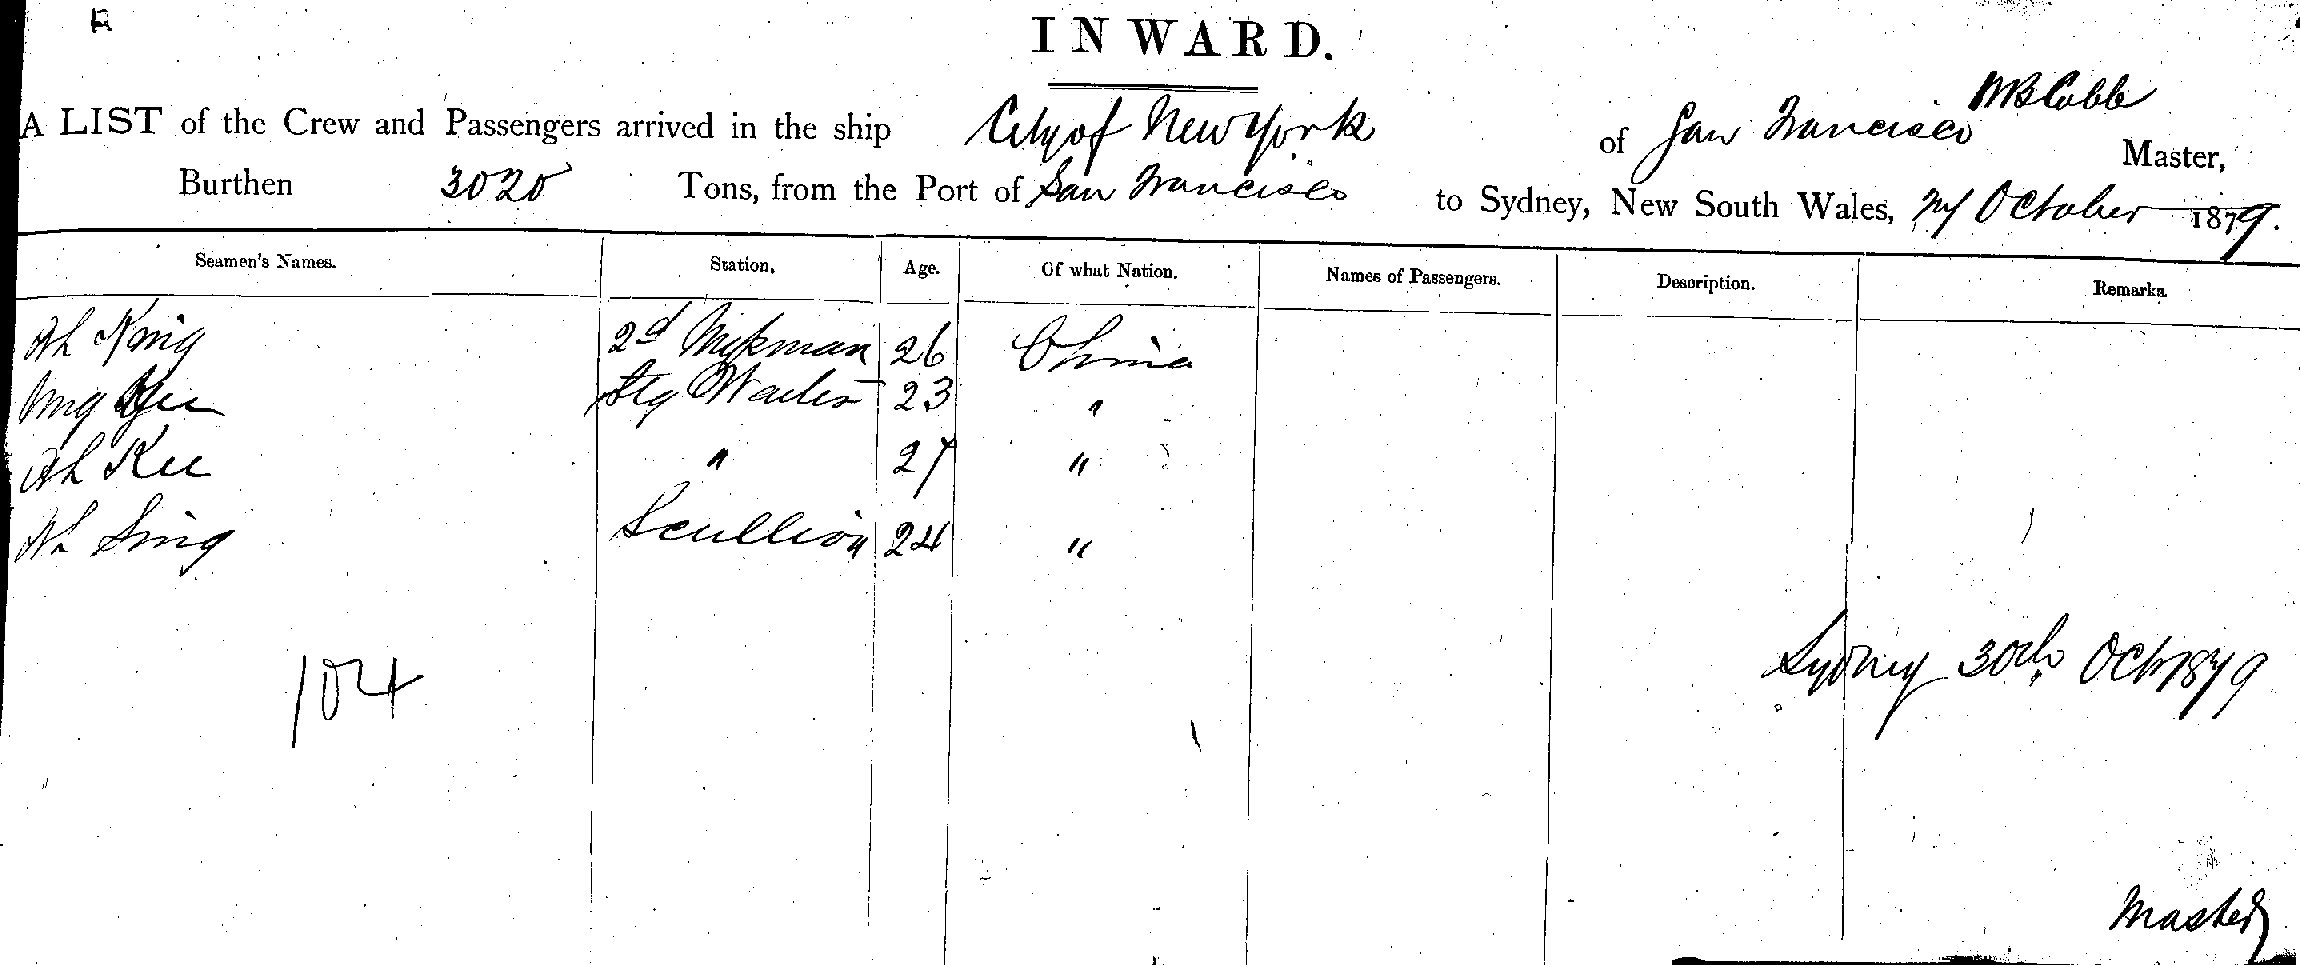 INWARD.
A LIST of the Crew and Passengers arrived in the ship City of New York of San Francisco W B Cobb Master,
Burthen 3020 Tons, from the Port of San Francisco to Sydney, New South Wales, October 1879.
Seamen's Names. Station. Age. Of what Nation. Names of Passengers. Description. Remarks
Ah King 2d 26 China
Stg Waiter 23 "
Ah Kee " 27 "
Ah Sing Scullion 24 "
Sydney 30th Oct 1879
104
Master